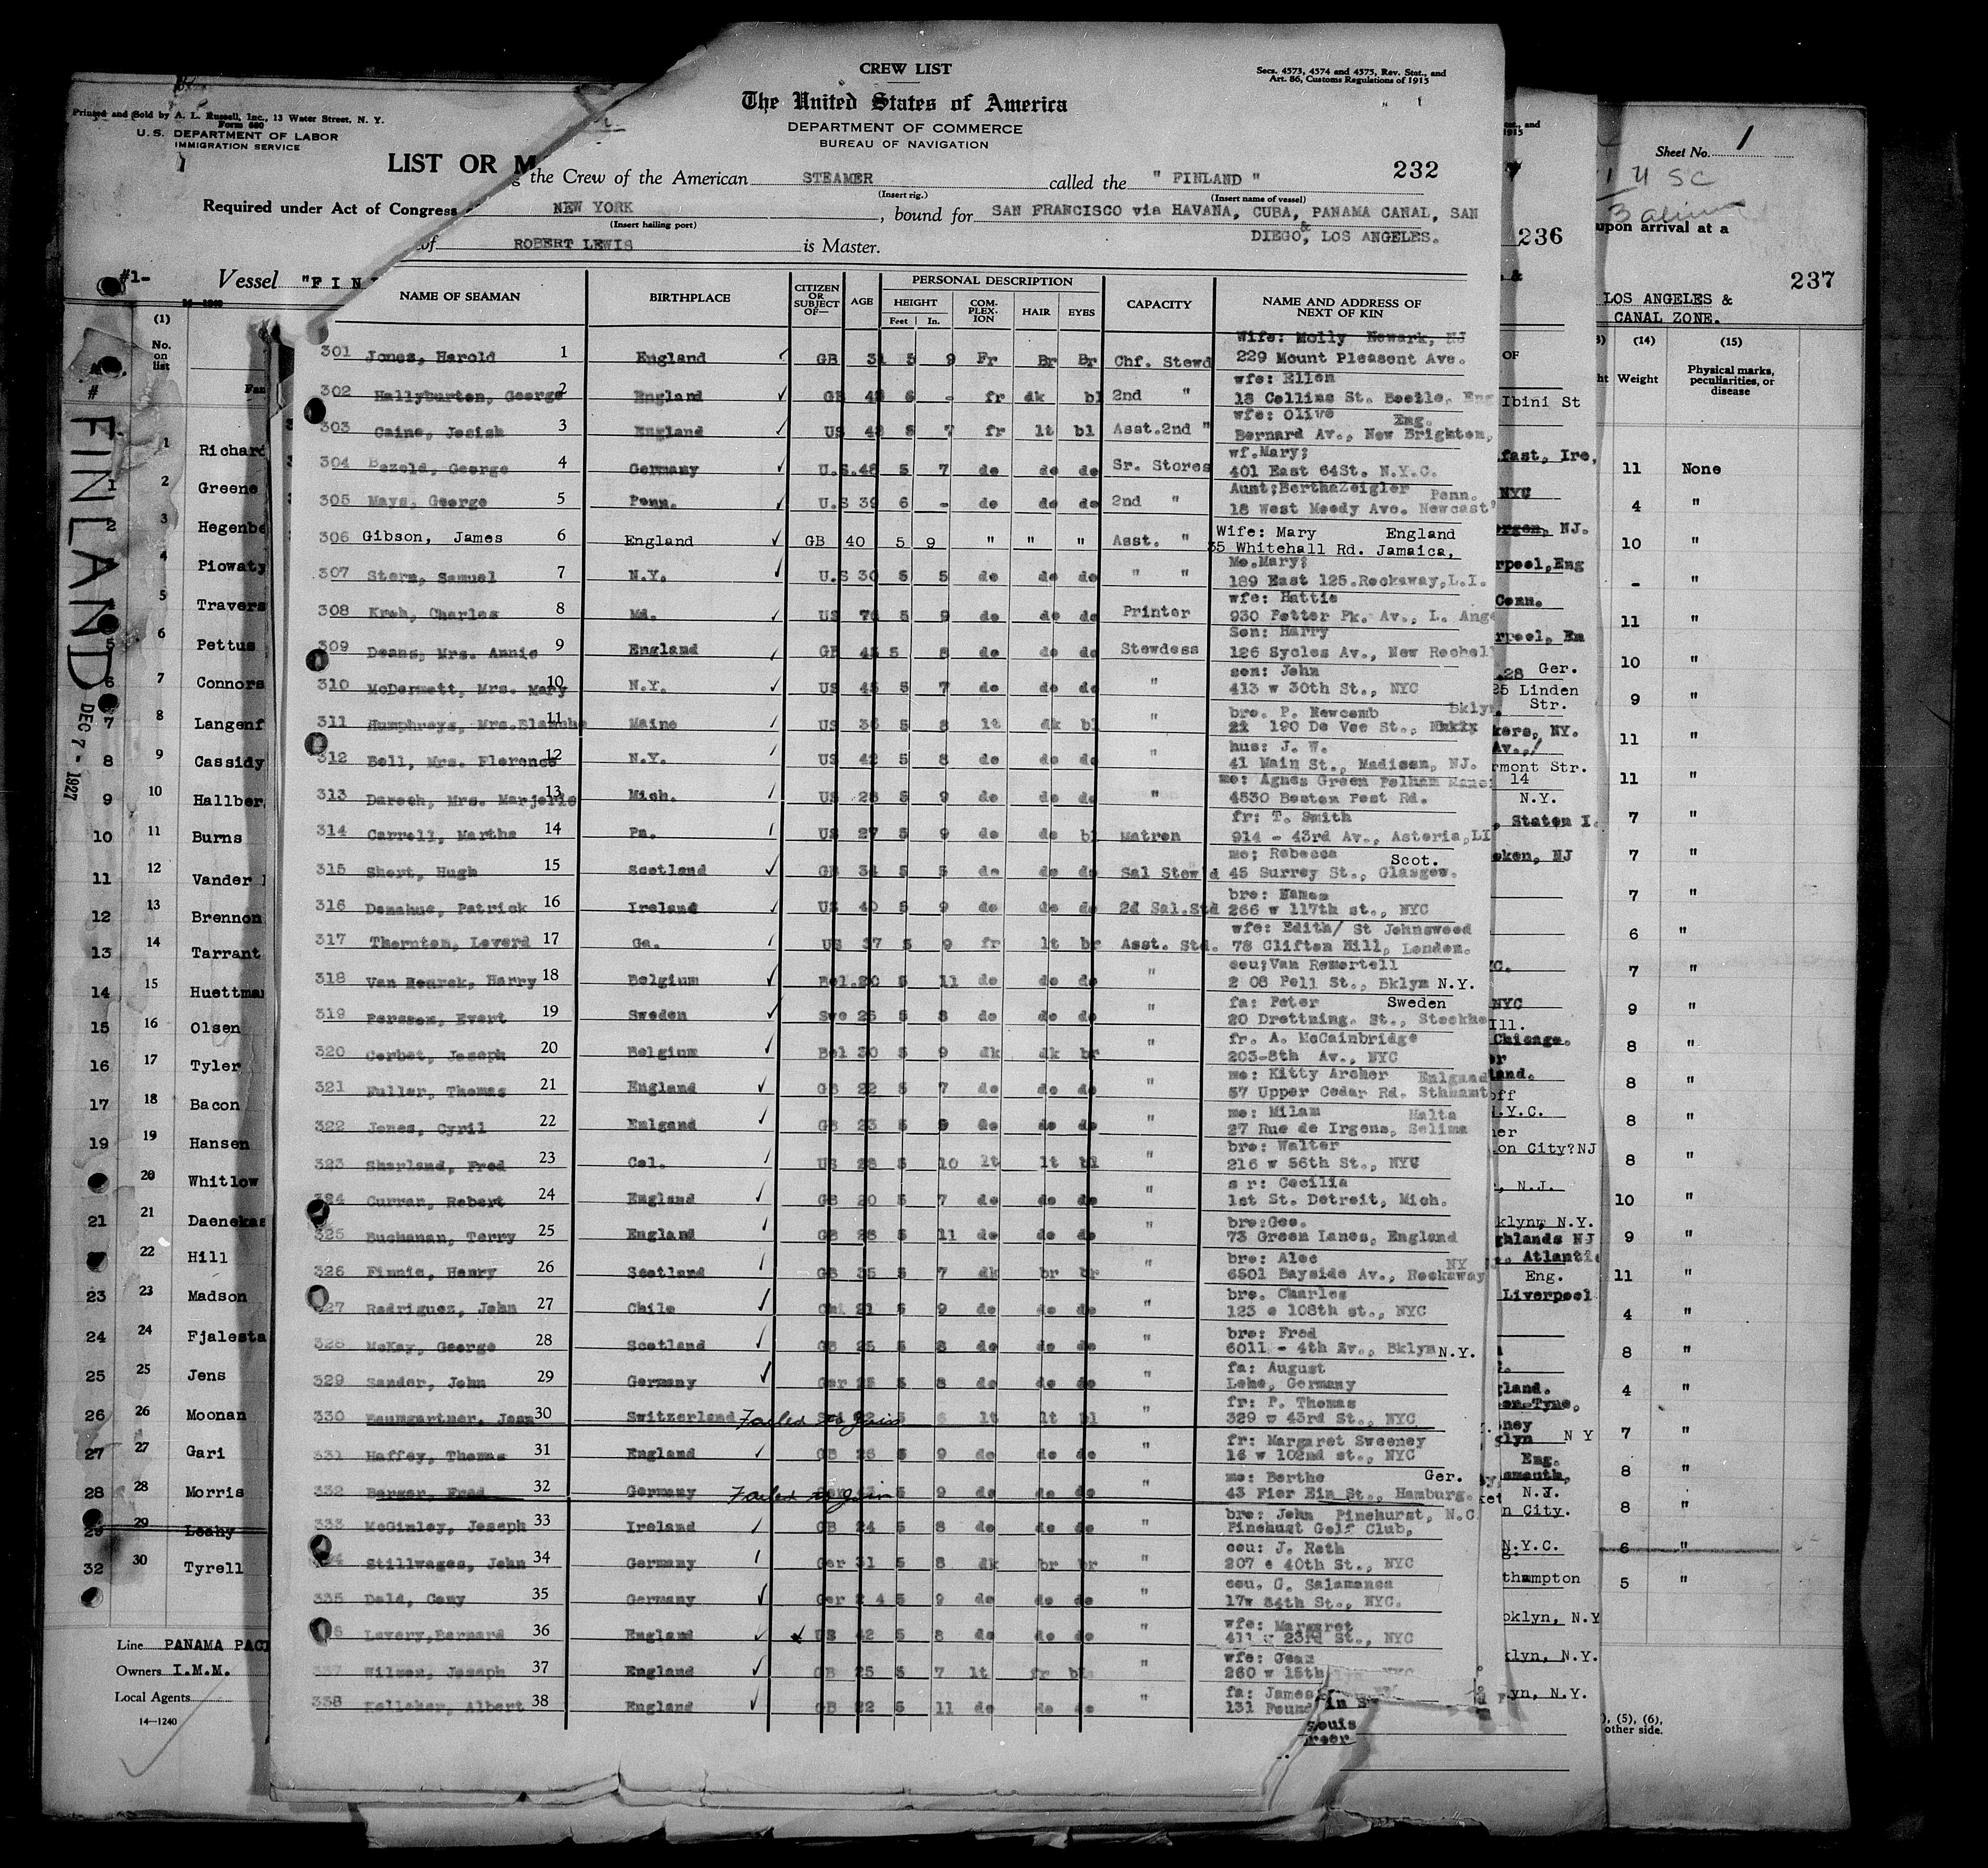 CREW LIST
Secs. 4573, 4574 and 4575, Rev. Stat., and
Art. 86, Customs Regulations of 1915
The United States of America
DEPARTMENT OF COMMERCE
BUREAU OF NAVIGATION
232
the Crew of the American STEAMER called the " FINLAND "
(Insert rig.) (Insert name of vessel)
NEW YORK , bound for SAN FRANCISCO via HAVANA, CUBA, PANAMA CANAL, SAN
(Insert hailing port) & DIEGO, LOS ANGELES.
of ROBERT LEWIS is Master.
NAME OF SEAMAN BIRTHPLACE CITIZEN OR SUBJECT OF— AGE PERSONAL DESCRIPTION CAPACITY NAME AND ADDRESS OF NEXT OF KIN
HEIGHT COMPLEXION HAIR EYES
Feet In.
Wife: Molly Newark, NJ
301 Jones, Harold 1 England GB 31 5 9 Fr Br Br Chf. Stewd 229 Mount Pleasent Ave.
wfe: Ellen
302 Hallyburton, George 2 England GB 6 - fr dk bl 2nd " 18 Collins St. Bootle, Eng
wfe: Olive Eng.
303 Caine, Josiah 3 England US 5 7 fr lt bl Asst.2nd " Bernard Av., New Brighton,
wf.Mary;
304 Bezold, George 4 Germany U.S. 48 5 7 do do do Sr. Stores 401 East 64St. N.Y.C.
Aunt;BerthaZeigler Penn.
305 Mays, George 5 Penn. U.S 39 6 - do do do 2nd " 18 West Moody Ave. Newcast
Wife: Mary England
306 Gibson, James 6 England GB 40 5 9 " " " Asst. " 35 Whitehall Rd. Jamaica,
Mo.Mary;
307 Stern, Samuel 7 N.Y. U.S 30 5 5 do do do " " 189 East 125.Rockaway,L.I.
wfe: Hattie
308 Kroh, Charles 8 Md. US 76 5 9 do do do Printer 930 Potter Pk. Av., L. Ang
Son: Harry
309 Deans, Mrs. Annie 9 England GB 5 8 do do do Stewdess 126 Sycles Av., New Rochel
son: John
310 McDermott, Mrs. Mary 10 N.Y. US 45 5 7 do do do " 413 w 30th St., NYC
bro. P. Newcomb Bklyn
311 Humphreys, Mrs.Blanche 11 Maine US 36 5 8 lt dk bl " 190 De Voe St.,
hus: J. W.
312 Bell, Mrs. Florence 12 N.Y. US 42 5 8 do do do " 41 Main St., Madison, NJ.
mo: Agnes Green Pelham Manor
313 Daroch, Mrs. Marjorie 13 Mich. US 28 5 9 do do do " 4530 Boston Post Rd.
fr: T. Smith
314 Carroll, Martha 14 Pa. US 27 5 9 do do bl Matron 914 - 43rd Av., Astoria,LI
mo; Rebecca Scot.
315 Short, Hugh 15 Scotland GB 34 5 5 do do do Sal Stew'd 45 Surrey St., Glasgow.
bro: Names
316 Donahue, Patrick 16 Ireland US 40 5 9 do do do 2d Sal.Std 266 w 117th st., NYC
wfe: Edith/ St Johnswood
317 Thornton, Loverd 17 Ga. US 37 5 9 fr lt br Asst. Std. 78 Clifton Hill, London.
cou;Van Remortell
318 Van Harry 18 Belgium Bel.20 5 11 do do do " 2 08 Pell St., Bklyn N.Y.
fa: Peter Sweden
319 Persson, Evert 19 Sweden Swe 25 5 8 do do do " 20 Drottning. St., Stockho
fr. A. McCainbridge
320 Corbet, Joseph 20 Belgium Bel 30 5 9 dk dk br " 203-8th Av., NYC
mo: Kitty Archer Enlgnad
321 Fuller, Thomas 21 England GB 22 5 7 do do do " 57 Upper Cedar Rd. Sthhamt
mo: Milam Malta
322 Jones, Cyril 22 Enlgand GB 23 5 9 do do do " 27 Rue de Irgens, Selima
bro: Walter
323 Sharland, Fred 23 Col. US 28 5 10 lt lt bl " 216 w 56th St., NYC
s r: Cecilia
324 Curran, Robert 24 England GB 20 5 7 do do do " 1st St. Detroit, Mich.
bro:Geo.
325 Buchanan, Terry 25 England GB 28 5 11 do do do " 73 Green Lanes, England
bro: Alec NY
326 Finnie, Henry 26 Scotland GB 35 5 7 dk br br " 6501 Bayside Av., Rockaway
bro. Charles
327 Radriguez, John 27 Chile Chi 21 5 9 do do do " 123 e 108th st., NYC
bro: Fred
328 McKay, George 28 Scotland GB 25 5 8 do do do " 6011 - 4th Av., Bklyn N.Y.
fa: August
329 Sander, John 29 Germany Ger 25 5 8 do do do " Lehe, Germany
fr: P. Thomas
330 Baumgartner, Jean 30 Switzerland Failed to join 5 6 lt lt bl " 329 w 43rd St., NYC
fr: Margaret Sweeney
331 Haffey, Thomas 31 England GB 26 5 9 do do do " 16 w 102nd st., NYC
mo: Berthe Ger.
332 Berger, Fred 32 Germany Failed to join 5 9 do do do " 43 Pier Ein St., Hamburg.
bro: John Pinehurst, N.C
333 McGinley, Joseph 33 Ireland GB 24 5 8 do do do " Pinehust Golf Club,
cou: J. Rath
334 Stillwages, John 34 Germany Ger 31 5 8 dk br br " 207 e 40th St., NYC
cou. G. Salamanca
335 Dald, Cony 35 Germany Ger 2 4 5 9 do do do " 17w 84th St., NYC.
wfe: Margaret
Lavery,Bernard 36 England US 42 5 8 do do do " 411 w 23rd St., NYC
wfe: Jean
337 Wilson, Joseph 37 England GB 25 5 7 lt fr bl " 260 w 15th
fa: James
338 Kelleher, Albert 38 England GB 22 5 11 do do do " 131 Found
Printed and Sold by A. L. Russell, Inc., 13 Water Street, N. Y.
Form 680
U.S. DEPARTMENT OF LABOR
IMMIGRATION SERVICE
LIST OR M
Required under Act of Congress
#1- Vessel "FIN
(1)
No. on list
FINLAND
DEC 7 - 1927
1 Richard
2 Greene
3 Hegenbe
4 Piowaty
5 Travers
6 Pettus
7 Connors
8 Langenf
9 Cassidy
10 Hallber
11 Burns
12 Vander
13 Brennon
14 Tarrant
15 Huettman
16 Olsen
17 Tyler
18 Bacon
19 Hansen
20 Whitlow
21 Daenekas
22 Hill
23 Madson
24 Fjalesta
25 Jens
26 Moonan
27 Gari
28 Morris
29 Leahy
30 Tyrell
Line PANAMA PACI
Owners I.M.M.
Local Agents
14—1240
236
Ibini St
fast, Ire,
NYC
NJ.
rpool,Eng
Conn.
.28 Ger.
25 Linden
Str.
kers, NY.
Av.,
rmont Str.
14
N.Y.
, Staten I.
oken, NJ
NYC
Ill.
Chicago.
land.
.Y.C.
on City?NJ
, N.J.
klyn, N.Y.
ghlands NJ
, Atlantic
Eng.
Liverpool
gland.
Tyne,
glyn N Y
Eng.
smouth,
N.J.
n City.
N.Y.C.
thampton
oklyn, N.Y
klyn, N.Y.
yn, N.Y.
Louis
Sheet No. 1
4 SC
3 alien
upon arrival at a
237
LOS ANGELES &
CANAL ZONE.
(14) (15)
Weight Physical marks, peculiarities, or disease
11 None
4 "
10 "
- "
11 "
10 "
9 "
11 "
11 "
7 "
7 "
7 "
6 "
7 "
9 "
8 "
8 "
8 "
8 "
10 "
9 "
11 "
4 "
8 "
4 "
7 "
8 "
8 "
6 "
5 "
), (5), (6),
other side.